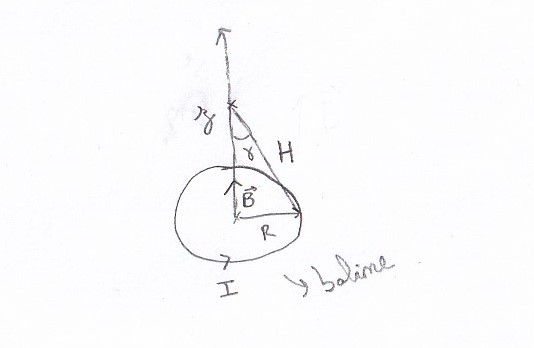 z
γ
H
B⃗
R
I
↘ bobine